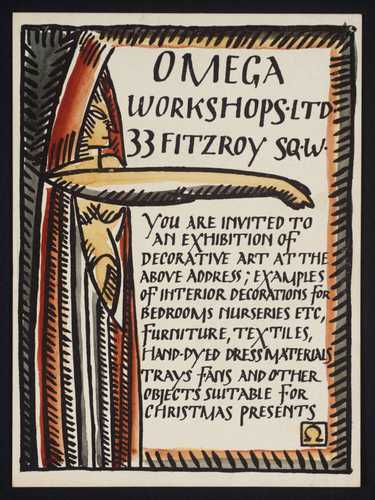 OMEGA
WORKSHOPS·LTD·
33 FITZROY SQ·W·
YOU ARE INVITED TO
AN EXHIBITION OF
DECORATIVE ART AT THE
ABOVE ADDRESS; EXAMPLES
OF INTERIOR DECORATIONS FOR
BEDROOMS NURSERIES ETC,
FURNITURE, TEXTILES,
HAND-DYED DRESS MATERIALS
TRAYS FANS AND OTHER
OBJECTS SUITABLE FOR
CHRISTMAS PRESENTS
Ω